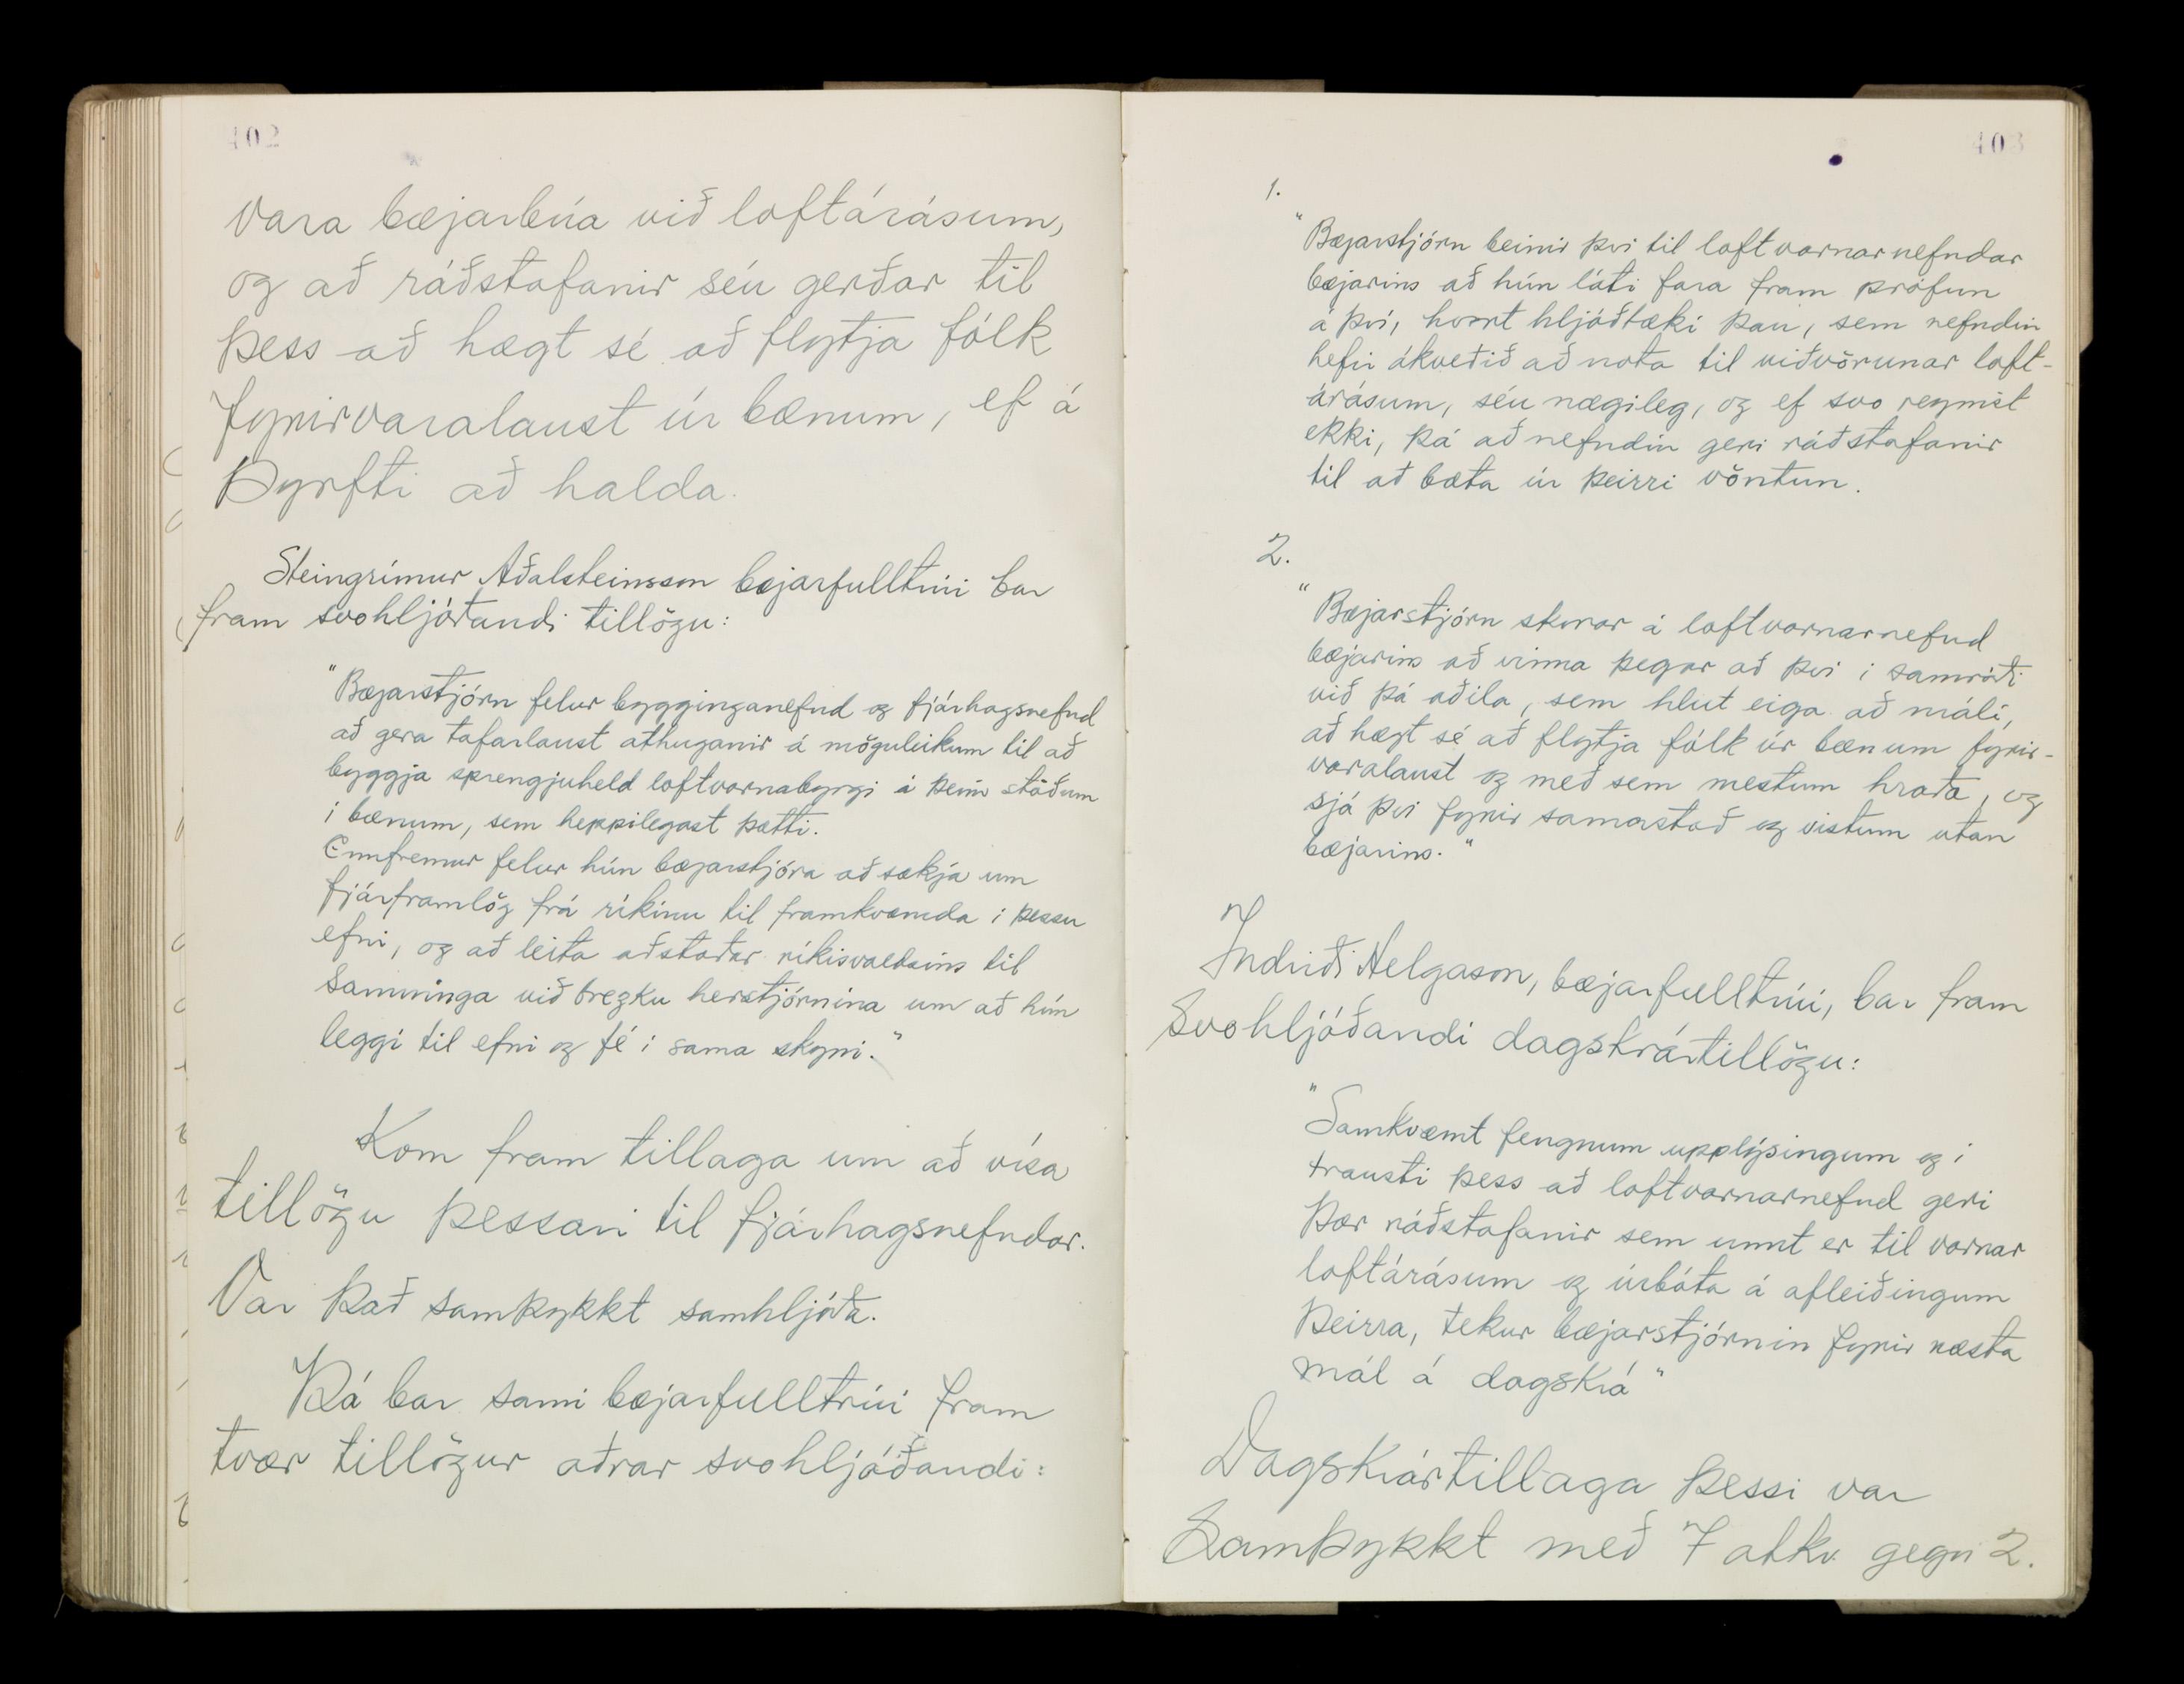 402
vara bæjarbúa við loftárásum,
og að ráðstafanir séu gerðar til
þess að hægt sé að flytja fólk
fyrirvaralaust úr bænum, ef á
þyrfti að halda.
Steingrímur Aðalsteinsson bæjarfulltrúi bar
fram svohljóðandi tillögu:
"Bæjarstjórn felur bygginganefnd og fjárhagsnefnd
að gera tafarlaust athuganir á möguleikum til að
byggja sprengjuheld loftvarnabyrgi á þeim stöðum
í bænum, sem heppilegast þætti.
Ennfremur felur hún bæjarstjóra að sækja um
fjárframlög frá ríkinu til framkvæmda í þessu
efni, og að leita aðstoðar ríkisvaldsins til
samninga við brezku herstjórnina um að hún
leggi til efni og fé í sama skyni."
Kom fram tillaga um að vísa
tillögu þessari til fjárhagsnefndar.
Var það samþykkt samhljóða.
Þá bar sami bæjarfulltrúi fram
tvær tillögur aðrar svohljóðandi:
403
1.
"Bæjarstjórn beinir því til loftvarnarnefndar
bæjarins að hún láti fara fram prófun
á því, hvort hljóðtæki þau, sem nefndin
hefir ákveðið að nota til viðvörunar loft-
árásum, séu nægileg, og ef svo reynist
ekki, þá að nefndin geri ráðstafanir
til að bæta úr þeirri vöntun.
2.
"Bæjarstjórn skorar á loftvarnarnefnd
bæjarins að vinna þegar að því í samráði
við þá aðila, sem hlut eiga að máli,
að hægt sé að flytja fólk úr bænum fyrir-
varalaust og með sem mestum hraða, og
sjá því fyrir samastað og vistum utan
bæjarins."
Indriði Helgason, bæjarfulltrúi, bar fram
svohljóðandi dagskrártillögu:
"Samkvæmt fengnum upplýsingum og í
trausti þess að loftvarnarnefnd geri
þær ráðstafanir sem unnt er til varnar
loftárásum og úrbóta á afleiðingum
þeirra, tekur bæjarstjórnin fyrir næsta
mál á dagskrá"
Dagskrártillaga þessi var
samþykkt með 7 atkv. gegn 2.